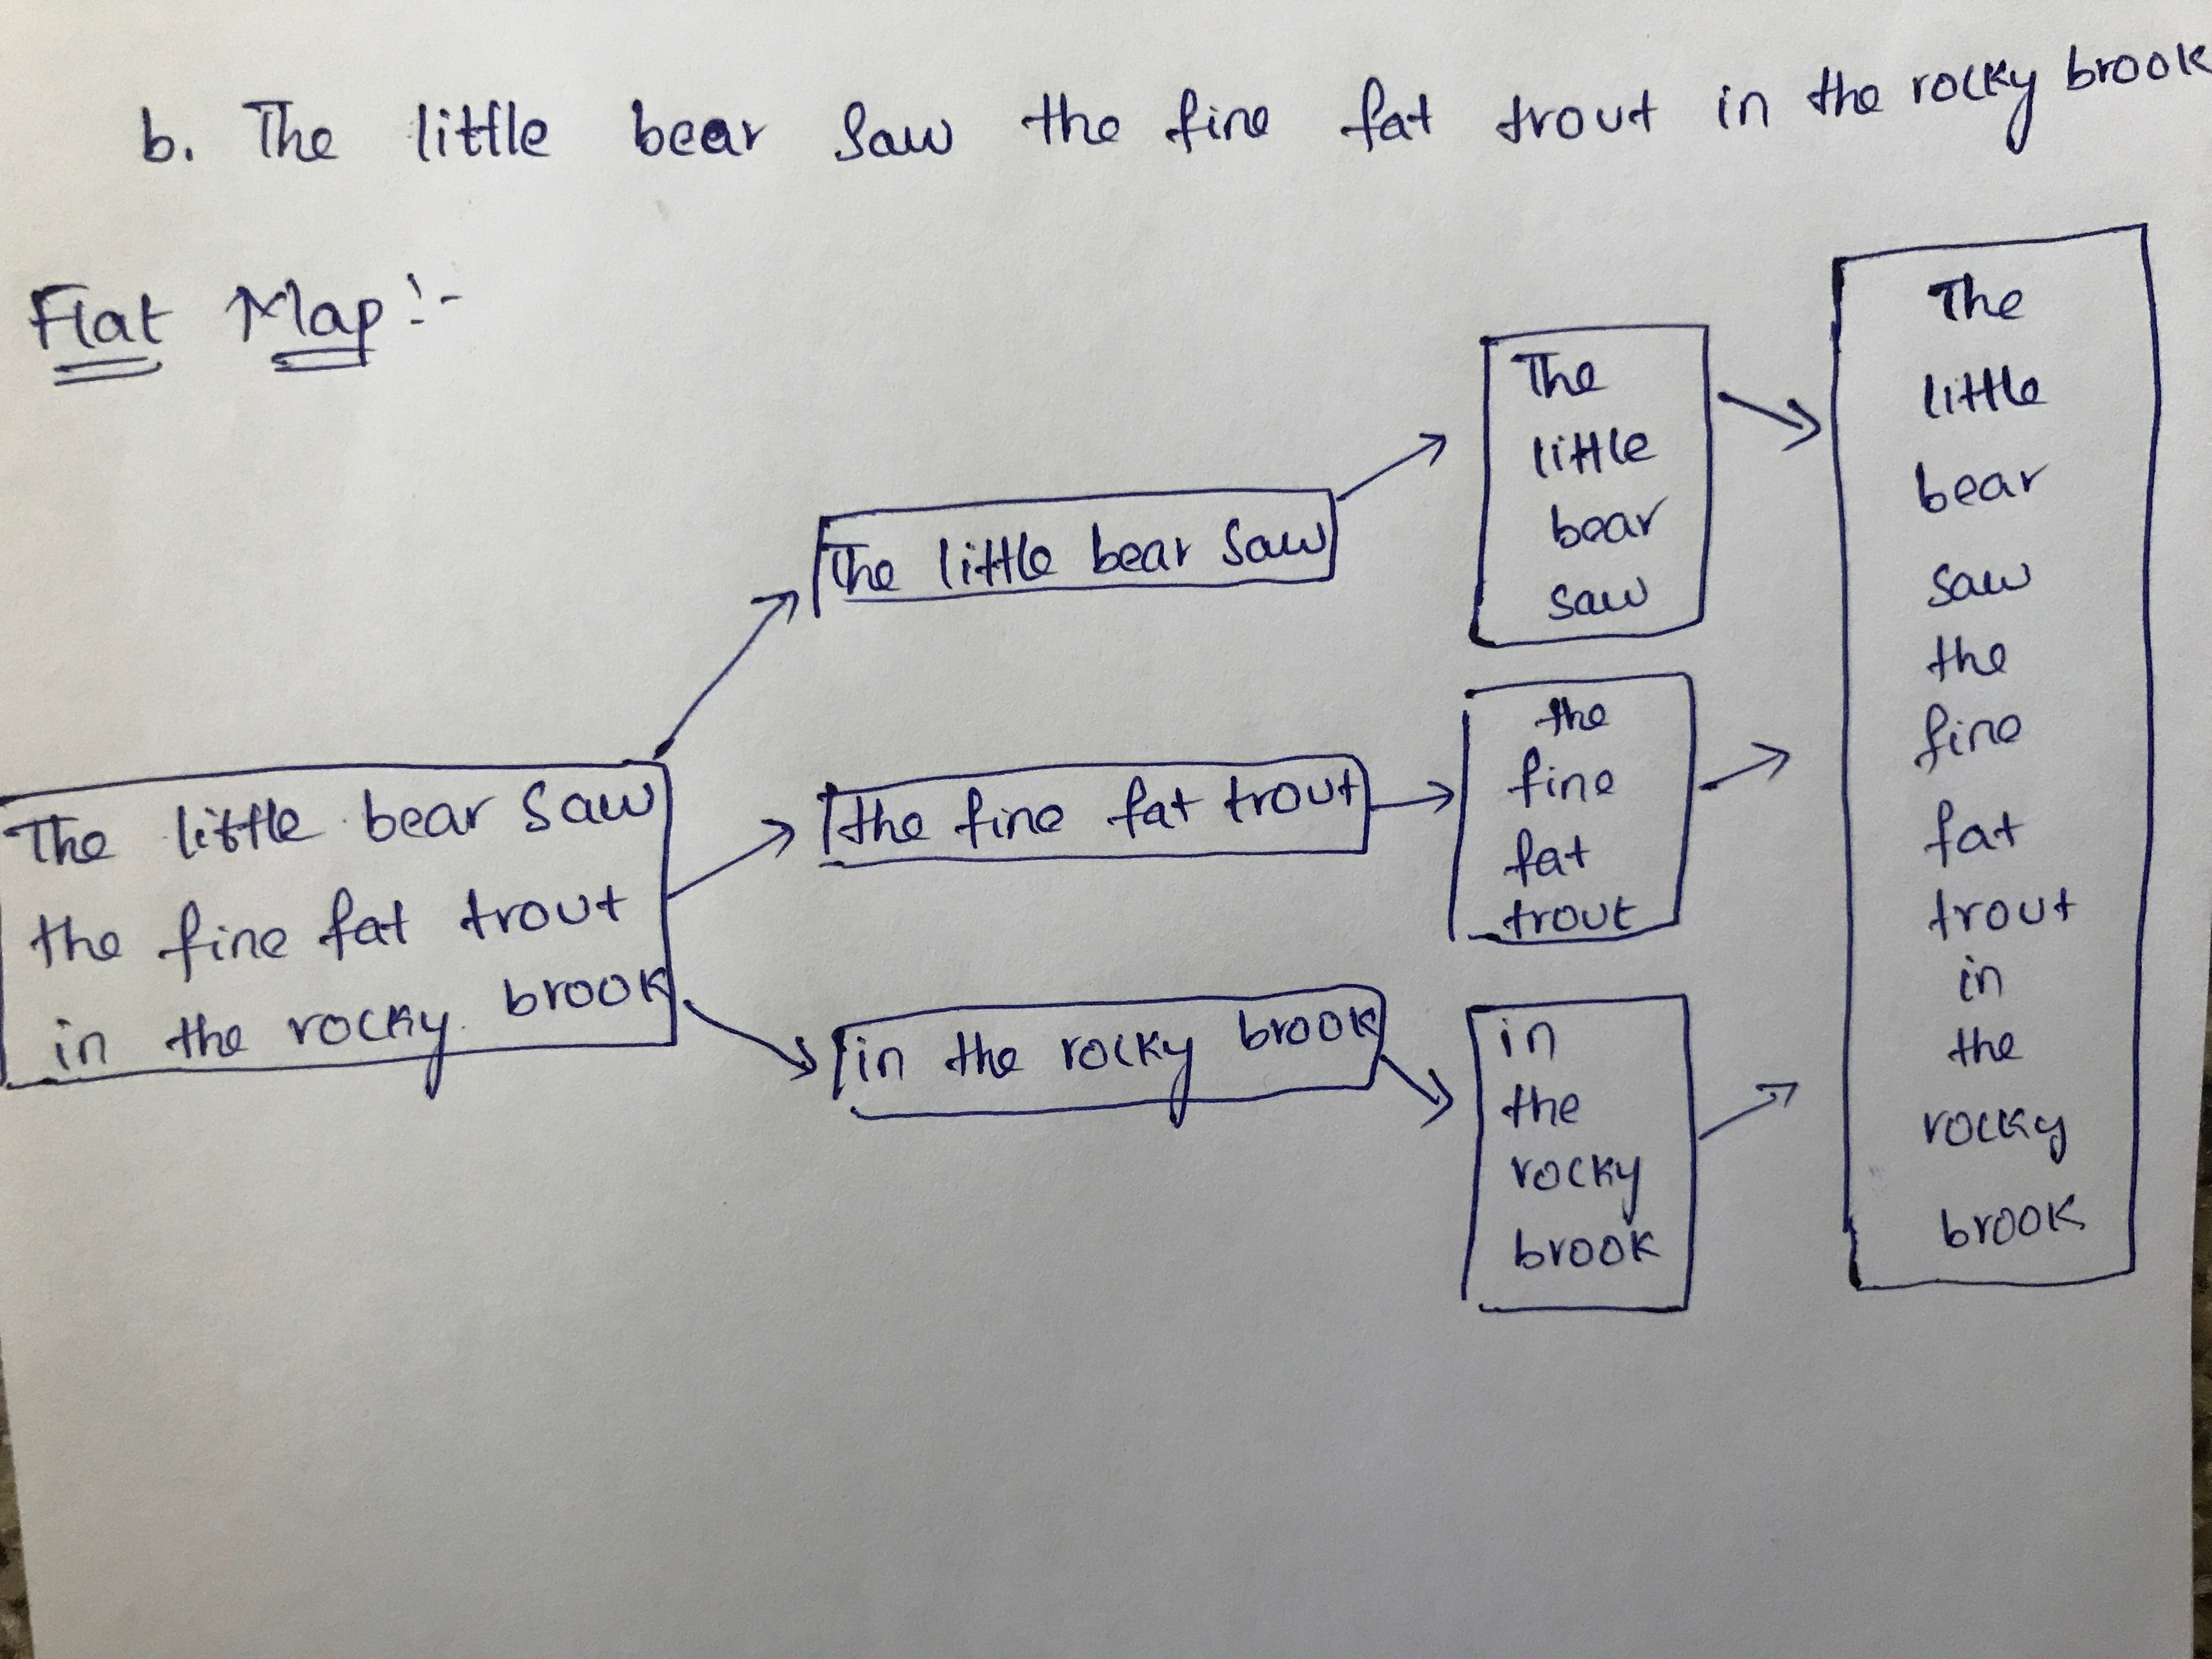 b. The little bear saw the fine fat trout in the rocky brook
Flat Map:-
The little bear saw
the fine fat trout
in the rocky brook
The little bear saw
the fine fat trout
in the rocky brook
The
little
bear
saw
the
fine
fat
trout
in
the
rocky
brook
The
little
bear
saw
the
fine
fat
trout
in
the
rocky
brook